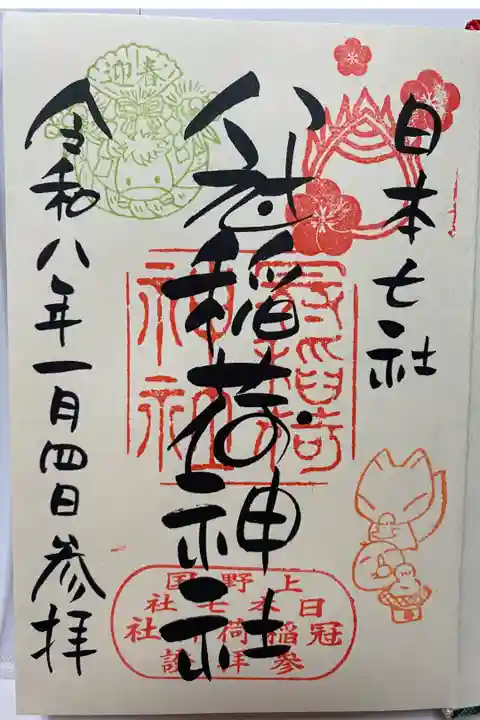 日本七社
社稲荷神社
令和八年一月四日参拝
迎春
冠稲荷
神社
上野国
日本七社
冠稲荷神社
参拝